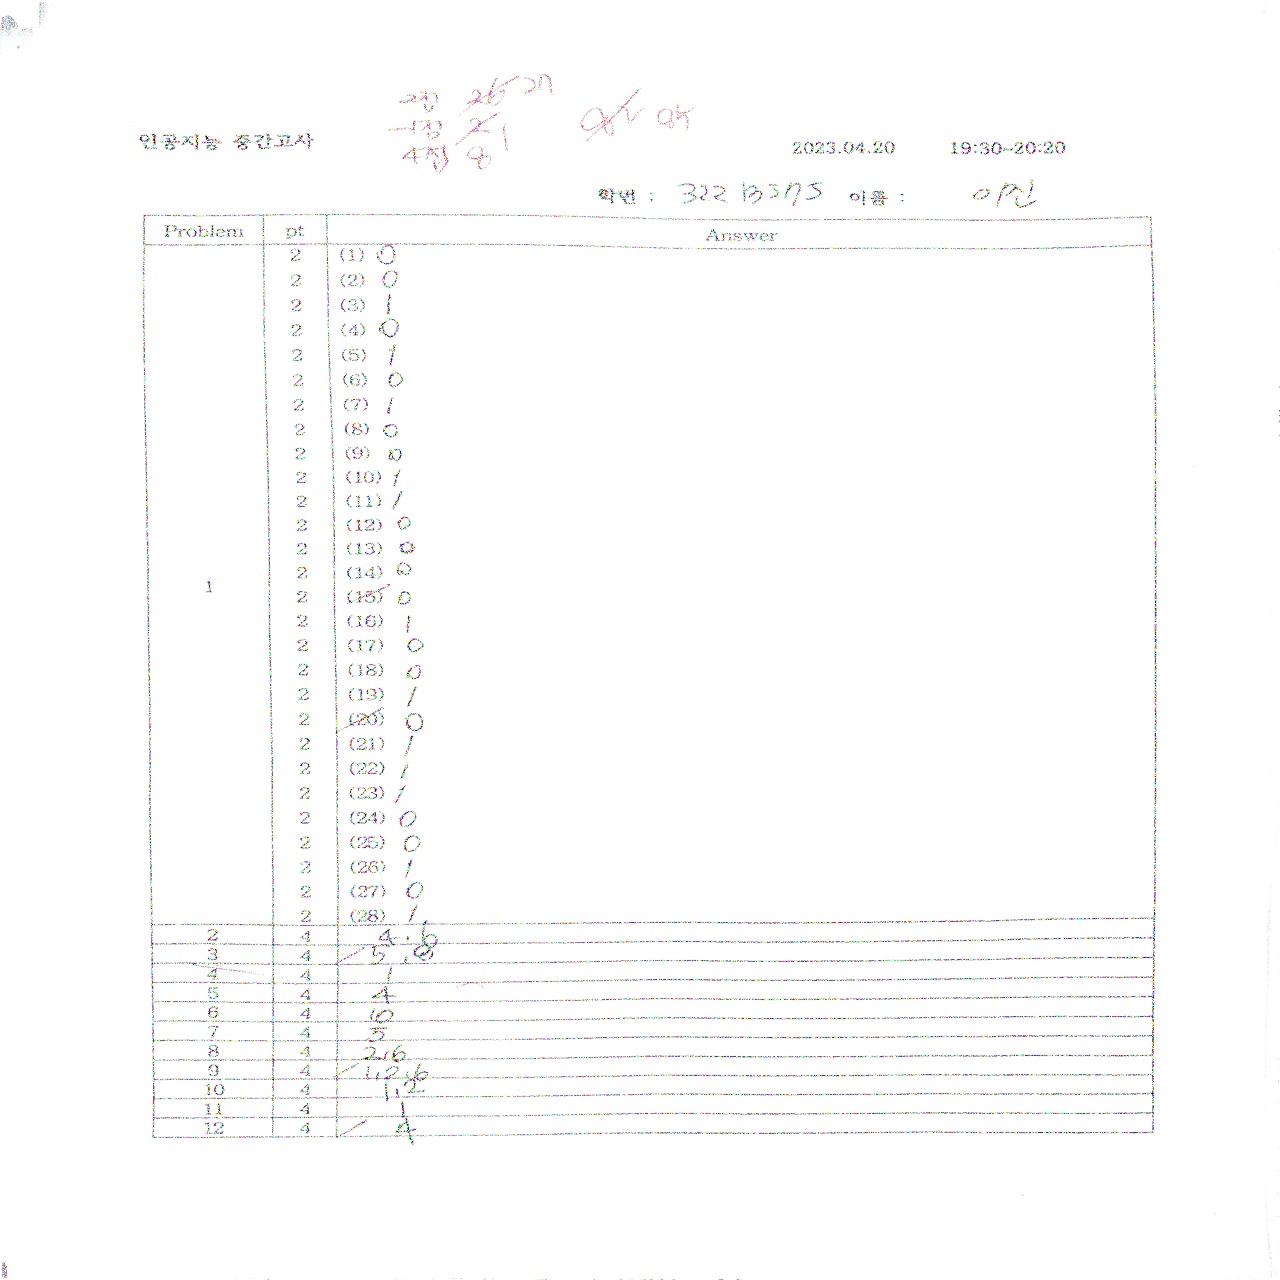 2점 26 27
-1점 2 1
4점 8
인공지능 중간고사
2023.04.20 19:30~20:20
학번 : 이름 :
Problem pt Answer
1
2 (1) 0
2 (2) 0
2 (3) 1
2 (4) 0
2 (5) 1
2 (6) 0
2 (7) 1
2 (8) 0
2 (9) 0
2 (10) 1
2 (11) 1
2 (12) 0
2 (13) 0
2 (14) 0
2 (15) 0
2 (16) 1
2 (17) 0
2 (18) 0
2 (19) 1
2 (20) 0
2 (21) 1
2 (22) 1
2 (23) 1
2 (24) 0
2 (25) 0
2 (26) 1
2 (27) 0
2 (28) 1
2 4 4.6
3 4 5.8
4 4 1
5 4 4
6 4 10
7 4 5
8 4 2,6
9 4 1,2,6
10 4 1,2
11 4 1
12 4 4